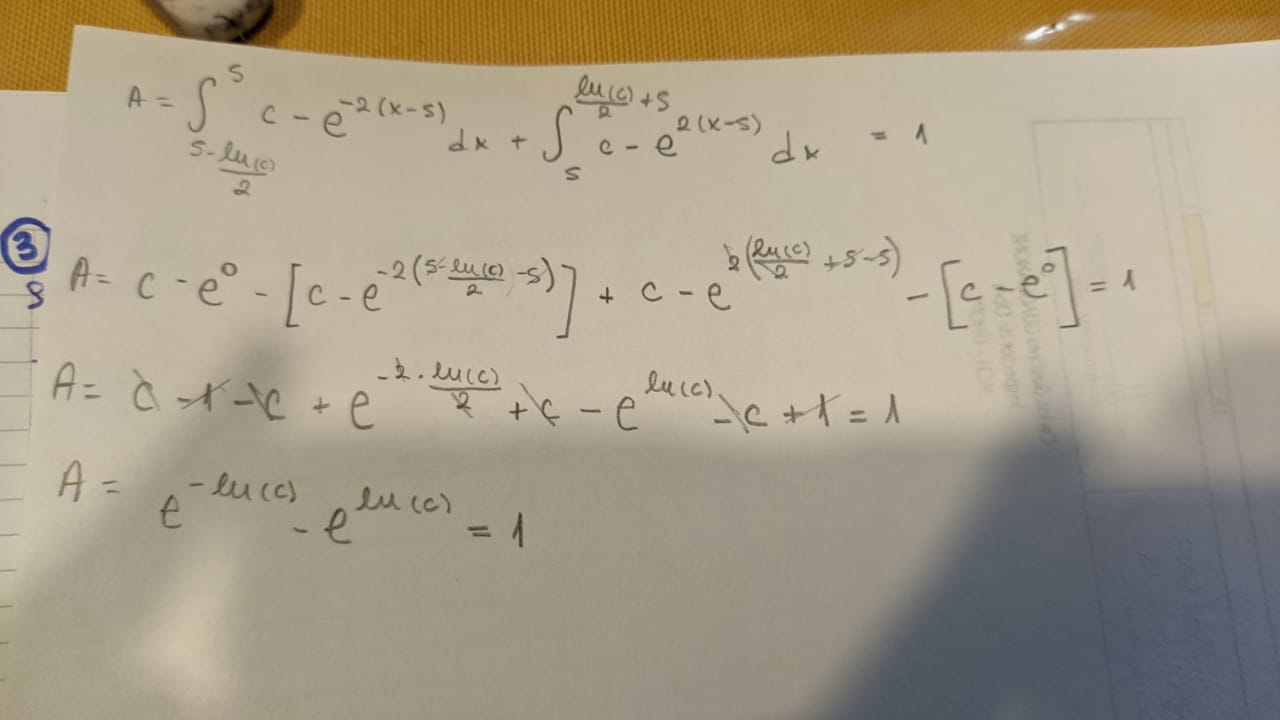 A = ∫_{5-ln(c)/2}^{5} c - e^{-2(x-5)} dx + ∫_{5}^{ln(c)/2 + 5} c - e^{2(x-5)} dx = 1
③
8
A = c - e^0 - [c - e^{-2(5-ln(c)/2 -5)}] + c - e^{2(ln(c)/2 +5-5)} - [c - e^0] = 1
A = c - 1 - c + e^{-2·ln(c)/2} + c - e^{ln(c)} - c + 1 = 1
A = e^{-ln(c)} - e^{ln(c)} = 1